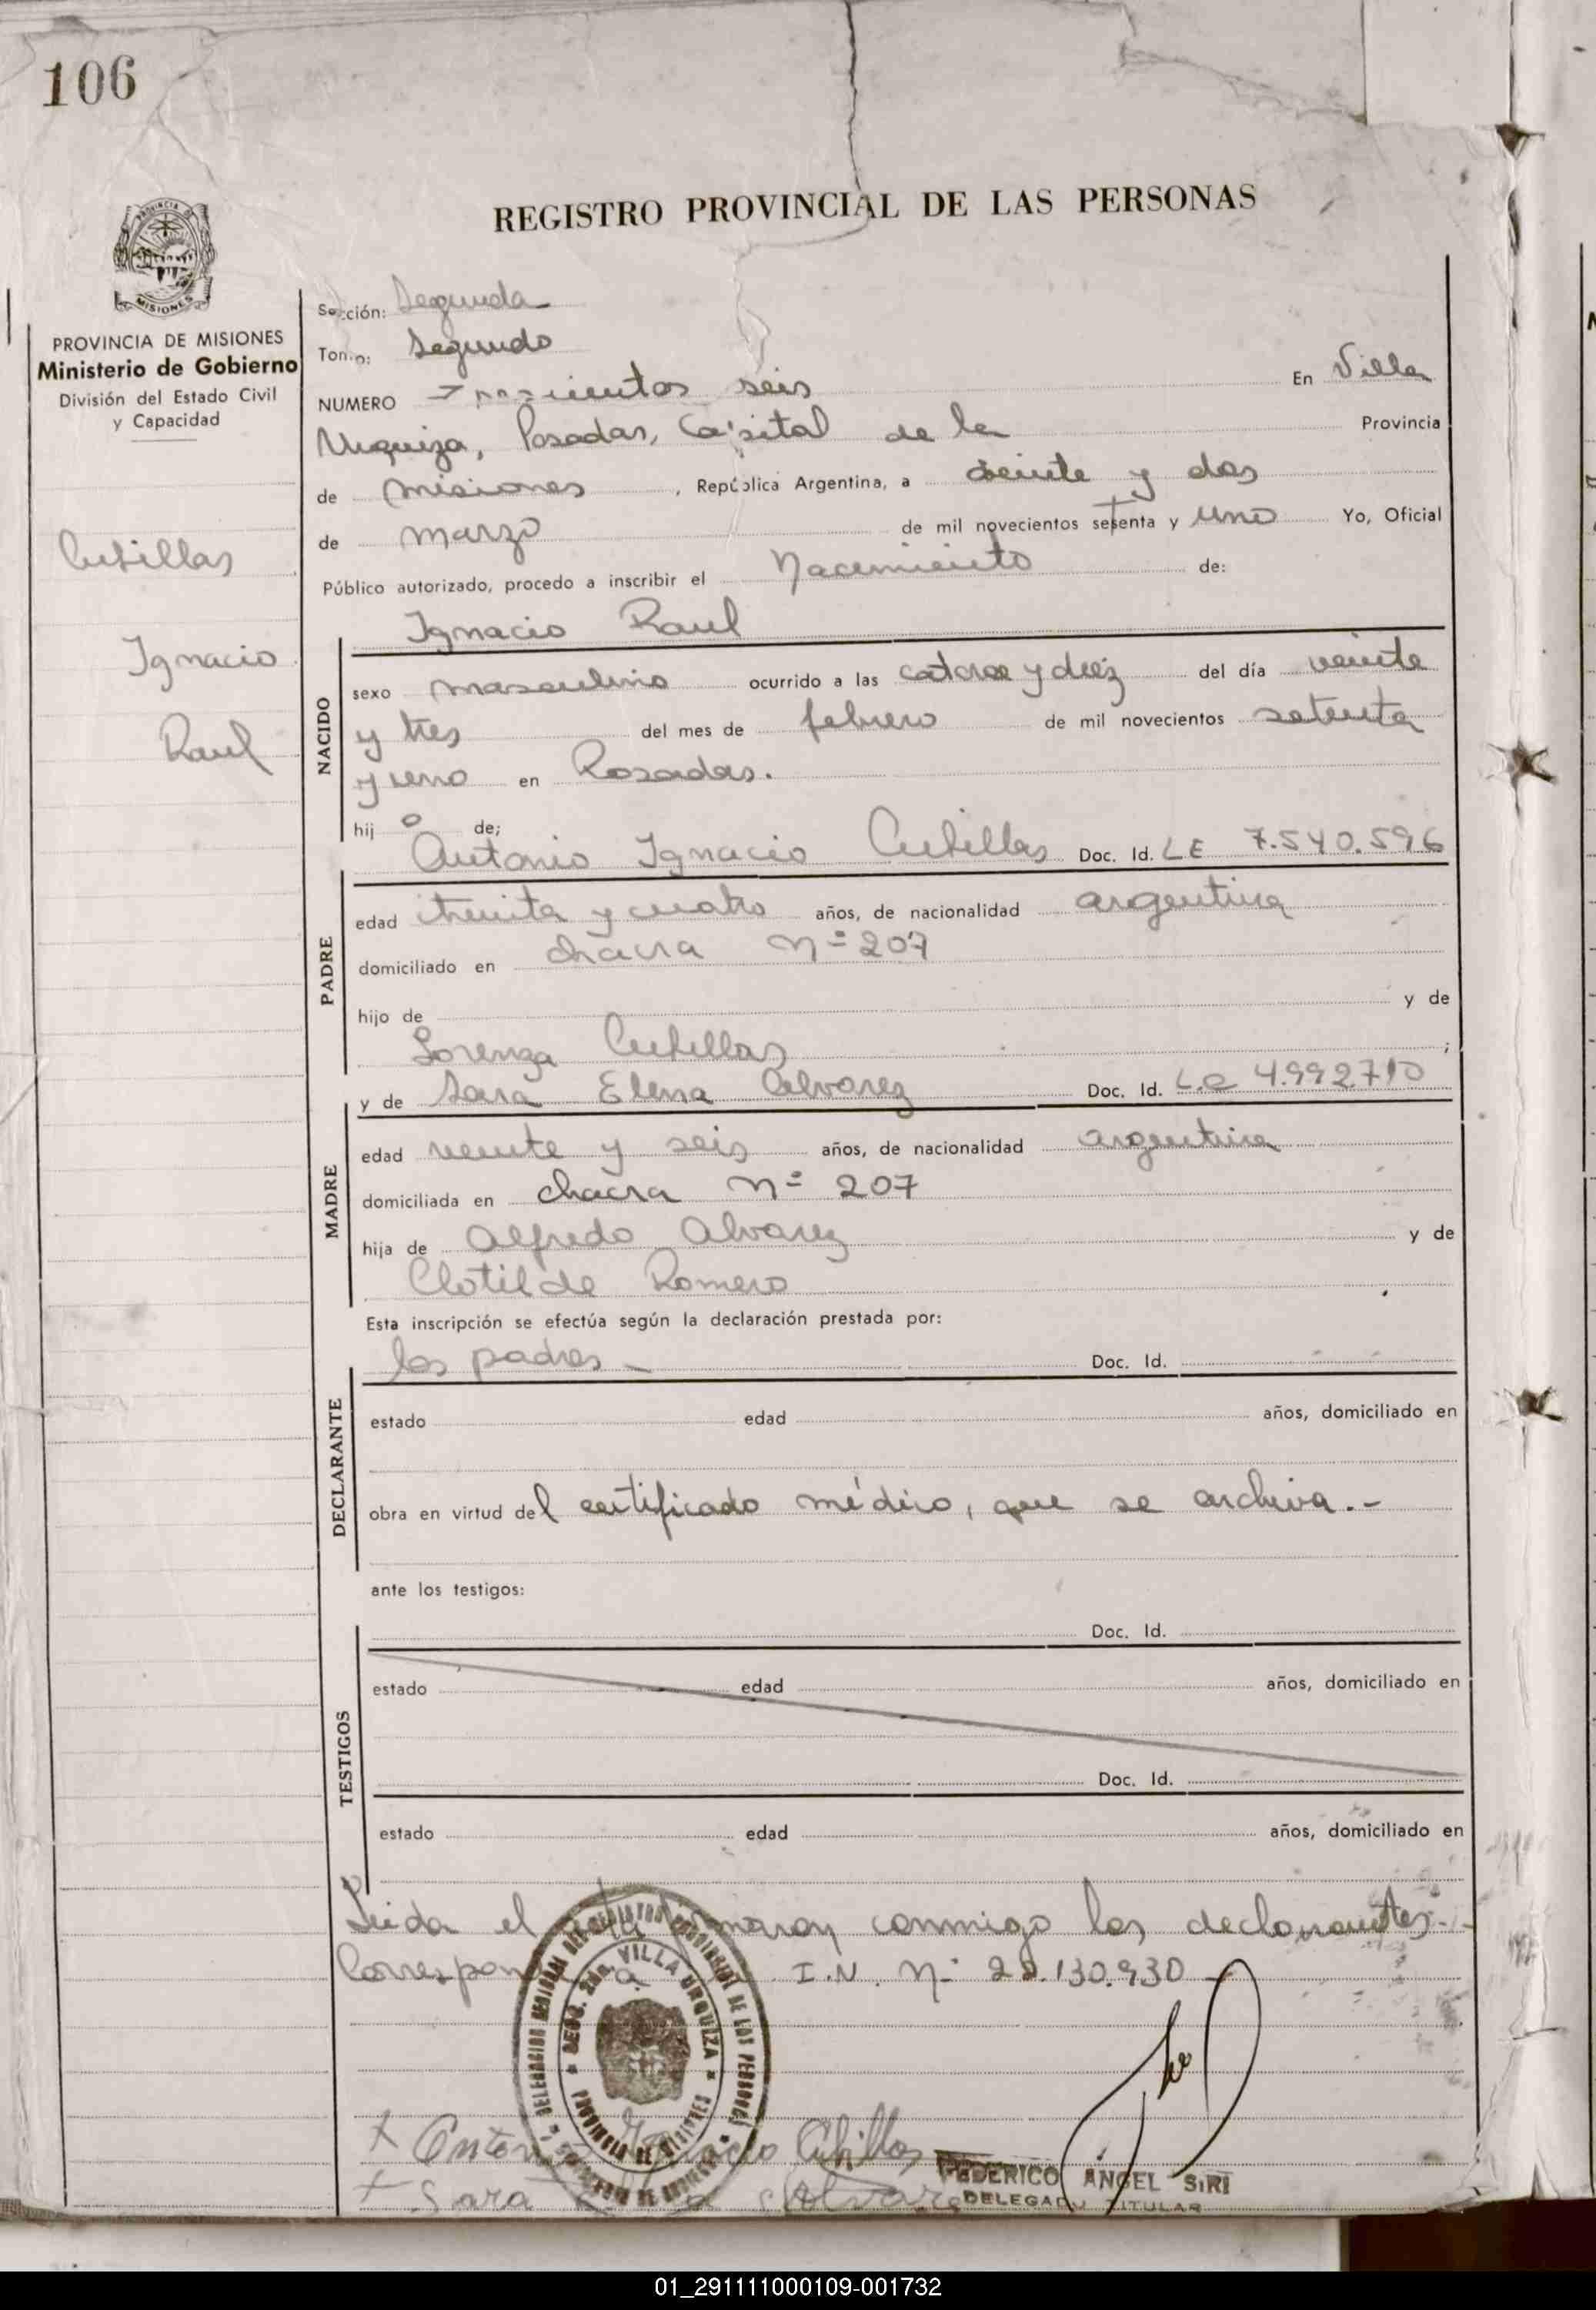 106
PROVINCIA DE
MISIONES
REGISTRO PROVINCIAL DE LAS PERSONAS
PROVINCIA DE MISIONES
Ministerio de Gobierno
División del Estado Civil
y Capacidad
Cubillas
Ignacio
Raul
Sección: Segunda
Tomo: Segundo
NUMERO Trescientos seis En Villa
Urquiza, Posadas, Capital de la Provincia
de Misiones, República Argentina, a veinte y dos
de marzo de mil novecientos setenta y uno Yo, Oficial
Público autorizado, procedo a inscribir el Nacimiento de:
Ignacio Raul
NACIDO
sexo masculino ocurrido a las catorce y diéz del día veinte
y tres del mes de febrero de mil novecientos setenta
y uno en Posadas.
hijo de;
Antonio Ignacio Cubillas Doc. Id. LE 7.540.596
PADRE
edad treinta y cuatro años, de nacionalidad argentina
domiciliado en chacra Nº 207
hijo de y de
Lorenza Cubillas ;
y de Sara Elena Alvarez Doc. Id. L.C 4.992710
MADRE
edad veinte y seis años, de nacionalidad argentina
domiciliada en chacra Nº 207
hija de Alfredo Alvarez y de
Clotilde Romero
Esta inscripción se efectúa según la declaración prestada por:
los padres Doc. Id.
DECLARANTE
estado edad años, domiciliado en
obra en virtud del certificado médico, que se archiva.-
ante los testigos:
Doc. Id.
TESTIGOS
estado edad años, domiciliado en
Doc. Id.
estado edad años, domiciliado en
Leida el acta firmaron conmigo los declarantes.-
I.N. Nº 22.130.930
DELEGACION REGIONAL DEL REGISTRO PROVINCIAL DE LAS PERSONAS
SECC. 2da. VILLA URQUIZA
PROVINCIA DE MISIONES
Antonio Ignacio Cubillas
Sara Alvarez
FEDERICO ANGEL SIRI
DELEGADO TITULAR
01_291111000109-001732